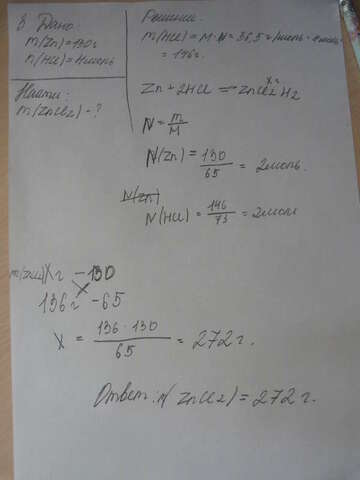 8 Дано:
m(Zn)=130г
n(HCl)=4моль
Найти:
m(ZnCl2)-?
Решение:
m(HCl)=M·N=36,5г/моль·4моль
=146г.
Xг
Zn+2HCl=ZnCl2 H2
N=m/M
N(Zn)=130/65=2моль.
N(Zn)
N(HCl)=146/73=2моль
m(ZnCl2)Xг-130
136г-65
X=136·130/65=272г.
Ответ: N ZnCl2)=272г.